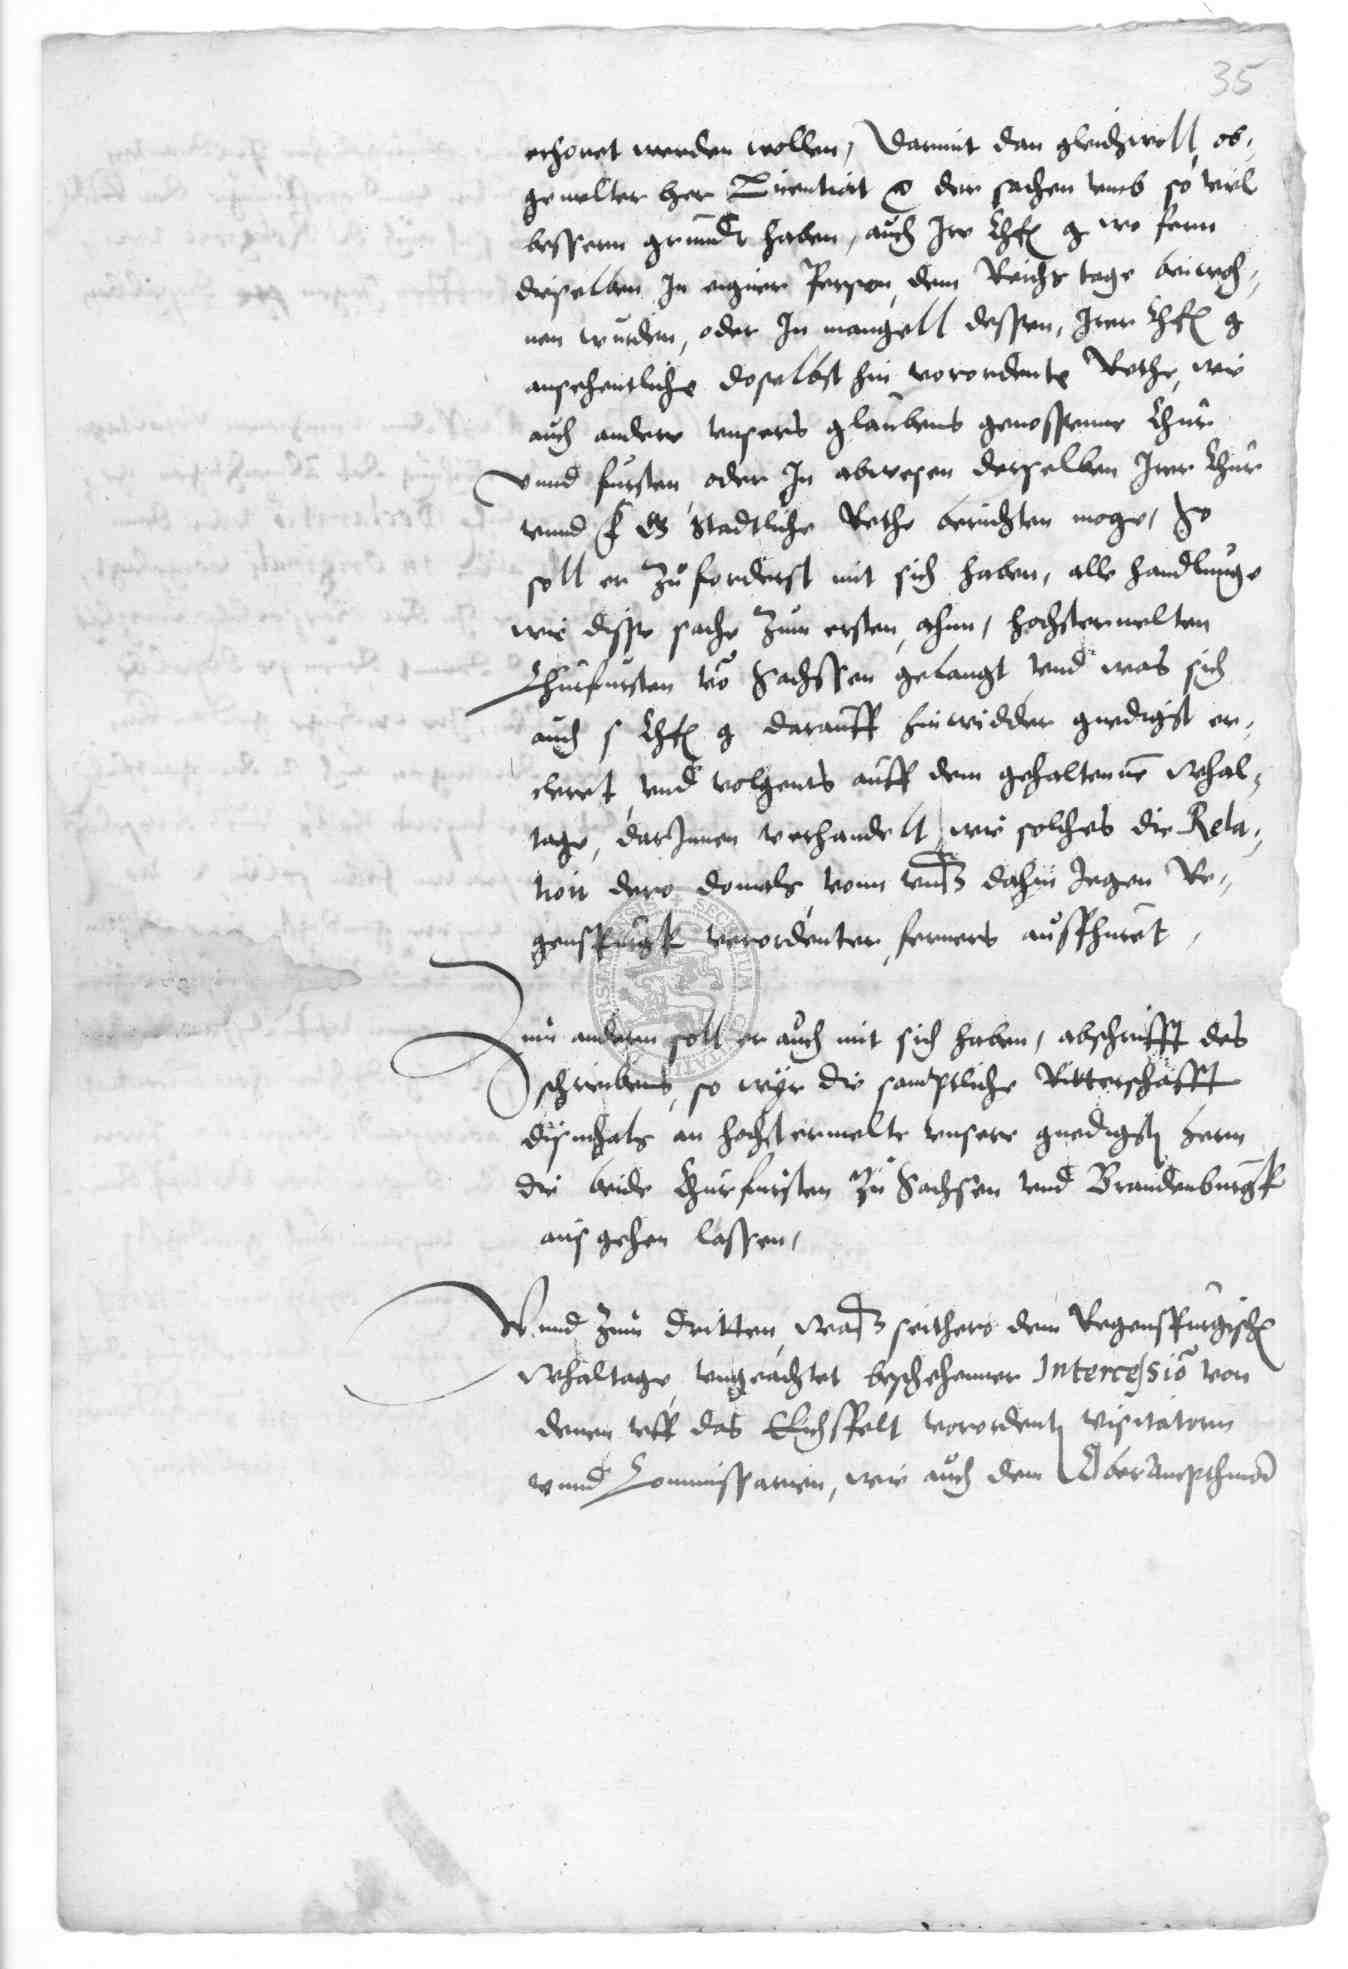 35
erhöret werden wollen, Damit dan gleichwoll, ob-
gemelter her Licentiat der sachen vmb so viel
bessern grundt haben, auch Ire Chf g wo fern
dieselben In eigner Person, dem Reichs tage beiwoh-
nen wurden, oder In mangell dessen, Irer Chf g
ansehentliche doselbst hin vorordente Rethe, wie
auch andere vnsers glaubens genossene Chur
vnnd fursten, oder In abwesen derselben Irer Chur
vnnd f G Stadtliche Rethe berichten moge, So
soll er Zu forderst mit sich haben, alle handlunge
wie disse sache Zum ersten, ahnn, hochstermelten
Churfursten vo Sachssen gelangt vnd was sich
auch s Chf g darauff hinwidder gnedigst er-
cleret, vnd volgents auff dem gehaltenne Whal-
tage, darJnnen verhandelt, wie solches die Rela-
tion dero domals vonn vnß dahin Jegen Re-
genspurgk verordenter, ferners außfhuret,
Zum andern soll er auch mit sich haben, abschrifft des
schreibens, so wyr die samptliche Ritterschafft
dismhals an hochstermelte vnsere gnedigst herrn
die beide Churfursten Zu Sachsen vnd Brandenburgk
ausgehen lassen,
Vnnd Zum dritten, waß seithero dem Regenspurgisch
Whaltage, vngeachtet beschehenner Intercessio von
denen vff das Eichsfelt vorordent visitatorn
vnnd Commissarien, wie auch dem OberAmpthma